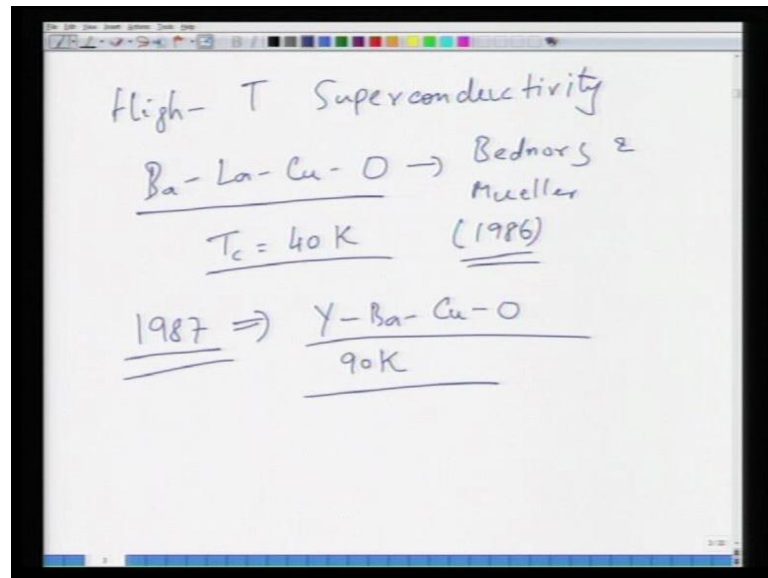 High- T Superconductivity
Ba - La - Cu - O → Bednors &
Mueller
Tc = 40 K (1986)
1987 ⇒ Y - Ba - Cu - O
90K